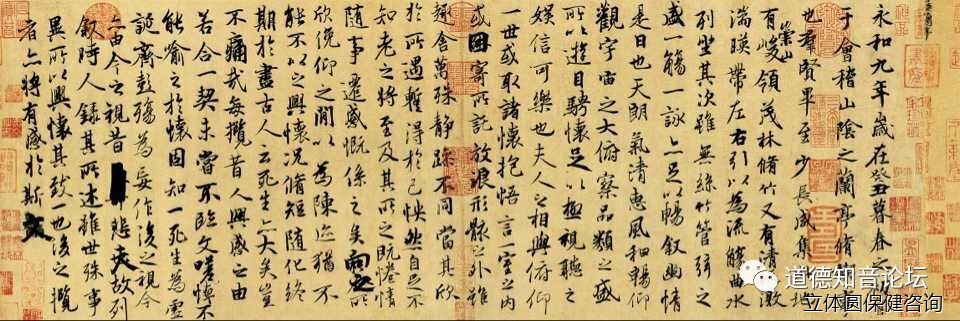 永和九年歲在癸丑暮春之初會
于會稽山陰之蘭亭脩稧事
也羣賢畢至少長咸集此地
有崇山峻領茂林脩竹又有清流激
湍暎帶左右引以為流觴曲水
列坐其次雖無絲竹管弦之
盛一觴一詠亦足以暢敘幽情
是日也天朗氣清惠風和暢仰
觀宇宙之大俯察品類之盛
所以遊目騁懷足以極視聽之
娛信可樂也夫人之相與俯仰
一世或取諸懷抱悟言一室之內
或因寄所託放浪形骸之外雖
趣舍萬殊靜躁不同當其欣
於所遇蹔得於己怏然自足不
知老之將至及其所之既惓情
隨事遷感慨係之矣向之所
欣俛仰之閒以為陳迹猶不
能不以之興懷況脩短隨化終
期於盡古人云死生亦大矣豈
不痛哉每攬昔人興感之由
若合一契未嘗不臨文嗟悼不
能喻之於懷固知一死生為虛
誕齊彭殤為妄作後之視今
亦由今之視昔悲夫故列
敘時人錄其所述雖世殊事
異所以興懷其致一也後之攬
者亦將有感於斯文
道德知音论坛
立体圆保健咨询